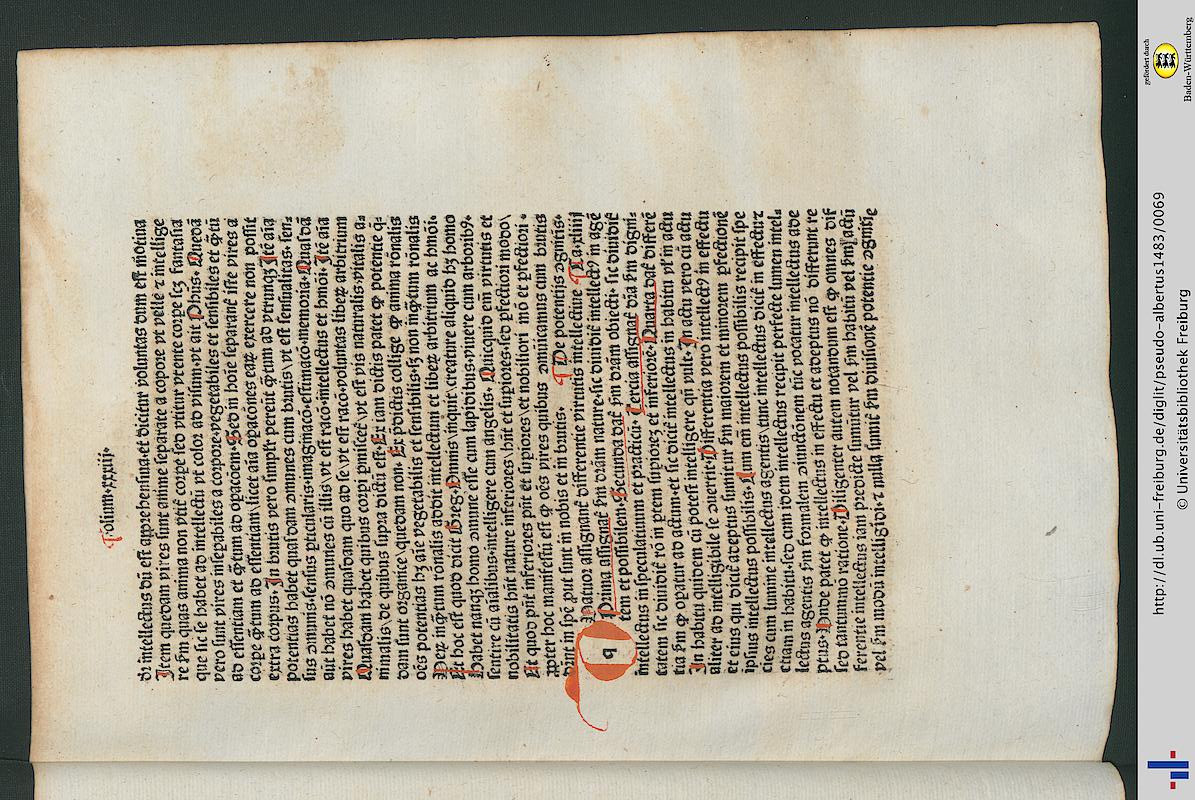 Folium .xxxiij.
di intellectus dū est apprehensiua·et dicitur voluntas dum est motiua
Item quedam vires sunt anime separate a corpore vt velle ⁊ intellige
re s̄m quas anima non vtit᷑ corpe sed vtitur vtente corpe scꝫ fantasia
que sic se habet ad intellectū vt color ad visum·vt ait Phus· Quedā
vero sunt vires insepabiles a corpore·vegetabiles et sensibiles et qͫtū
ad essentiam et qͫtum ad opacōem·Sed in hoīe separant᷑ iste vires a
corpe qͫtum ad essentiam\ licet aīa opacōnes eaꝝ exercere non possit
extra corpus· In brutis vero simplr pereūt qͫtum ad vtrunqꝫ Itē aīa
potentias habet quasdam ꝯmunes cum brutis\ vt est sensualitas· sen⸗
sus ꝯmunis·sensus pticularis·imaginacō·estimatō·memoria·Quasdā
aūt habet nō ꝯmunes cū illis\ vt est racō·intellectus et hmōi· Itē aīa
vires habet quasdam quo ad se\ vt est racō·voluntas liberꝝ arbitrium
Quasdam habet quibus corpi vt est vis naturalis·vitalis·a⸗
nimalis de quibus supra dictū est· Ex iam dictis patet ꝙ potentie q⸗
dam sunt organice\ quedam non· Ex pdictis collige ꝙ anima rōnalis
oēs potentias hꝫ aīe vegetabilis et sensibilis·sꝫ non inqͫtum rōnalis
inqͫtum ronalis addit intellectum et liberꝝ arbitrium ac hmōi·
Et hoc est quod dicit Greg· Omnis\ inquit creature aliquid hꝫ homo
Habet nanqꝫ homo ꝯmune esse cum lapidibus·viuere cum arborib9·
sentire cū aīalibus·intelligere cum angelis· Quicquid eīm virtutis et
nobilitatis hn̄t nature inferiores\ hn̄t et supiores·sed pfectiori modo\
Et quod pn̄t inferiores pn̄t et supiores\ et nobiliori mō et pfectiori·
ꝓpter hoc manifestū est ꝙ oēs vires quibus ꝯmunicamus cum brutis
in spē put sunt in nobis et in brutis· De potentijs ꝯgnitis·
Quatuor assignant᷑ differentie virtutis intellectiue Ca·xxiiij
Prima assignat᷑ s̄m dr̄am nature·sic diuidit᷑ intellect9 in agē
tem et possibilem·Secunda dat᷑ s̄m dr̄am obiecti· sic diuidit᷑
intellectus in speculatiuum et practicū· Tercia assignat᷑ dr̄a s̄m digni⸗
tatem sic diuidit᷑ rō in ptem supiorē et inferiorē·Quarta dat᷑ s̄m differē
tia s̄m ꝙ opatur ad actum·et sic dicit᷑ intellectus in habitu vt in actu
In habitu quidem cū potest intelligere qn̄ vult· In actu vero cū actu
aliter ad intelligibile se ꝯuertit·Differentia vero intellect9 in effectu
et eius qui dicit᷑ adeptus sumitur s̄m maiorem et minorem pfectionē
ipsius intellectus possibilis· Cum em̄ intellectus possibilis recipit spe
cies cum lumine intellectus agentis\ tunc intellectus dicit᷑ in effectu ⁊
etiam in habitu·sed cum idem intellectus recipit perfecte lumen intel⸗
lectus agentis s̄m formalem ꝯiunctionem tūc vocatur intellectus ade
ptus·Unde patet ꝙ intellectus in effectu et adeptus nō differunt re
sed tantummō ratione·Diligenter autem notandum est ꝙ omnes dif
ferentie intellectus iam predicte sumūtur vel s̄m habitū vel s̄m actū
vel s̄m modū intelligēdi· ⁊ nulla sumit᷑ s̄m diuisionē potentie ꝯgnitie
q
http://dl.ub.uni-freiburg.de/diglit/pseudo-albertus1483/0069
© Universitätsbibliothek Freiburg
gefördert durch
Baden-Württemberg